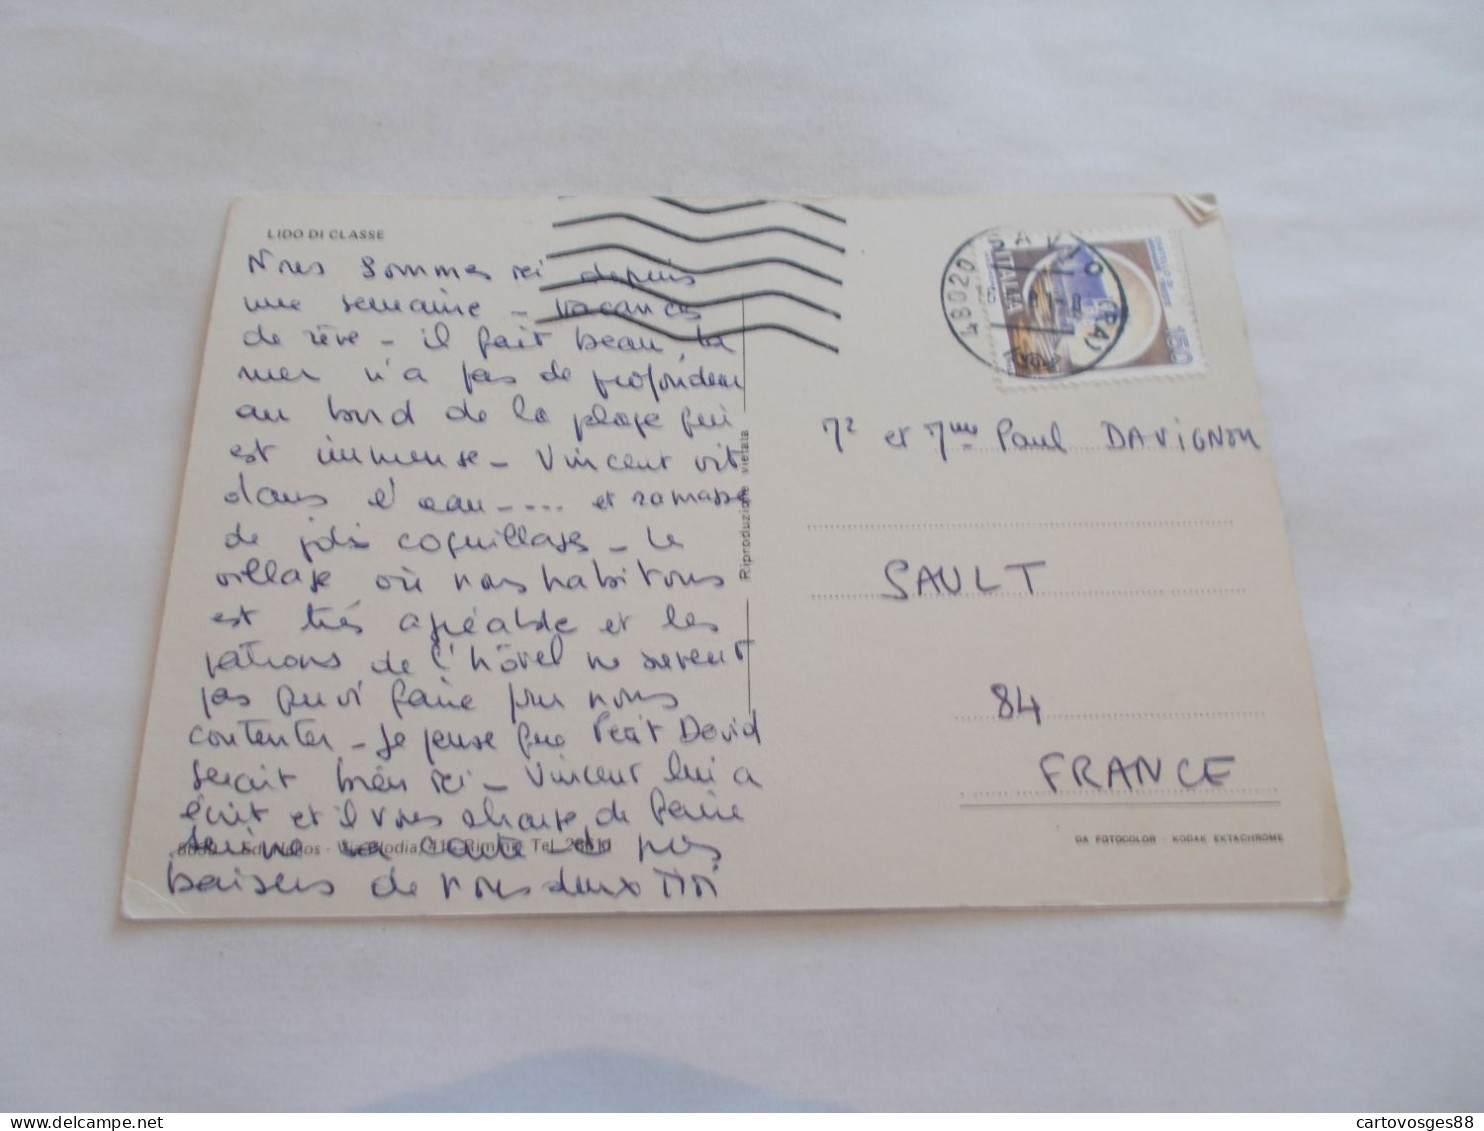 LIDO DI CLASSE
Nous sommes ici depuis
une semaine - vacances
de rêve - il fait beau, la
mer n'a pas de profondeur
au bord de la plage qui
est immense - Vincent vit
dans l'eau - .... et ramasse
de jolis coquillages - Le
village où nous habitons
est très agréable et les
patrons de l'hôtel ne savent
pas quoi faire pour nous
contenter - Je pense que Petit David
serait bien ici - Vincent lui a
écrit et il vous charge de faire
suivre sa carte
baisers de vous deux
Riproduzione vietata
48020 SAVIO (RA)
ITALIA
150
Mr et Mme Paul DAVIGNON
SAULT
84
FRANCE
GA FOTOCOLOR - KODAK EKTACHROME
cartovosges88